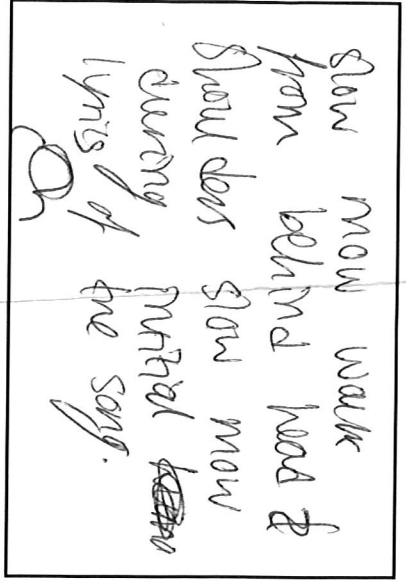 slow mow walk
from behind head &
shoulders slow mow
during initial
lyrics of the song.